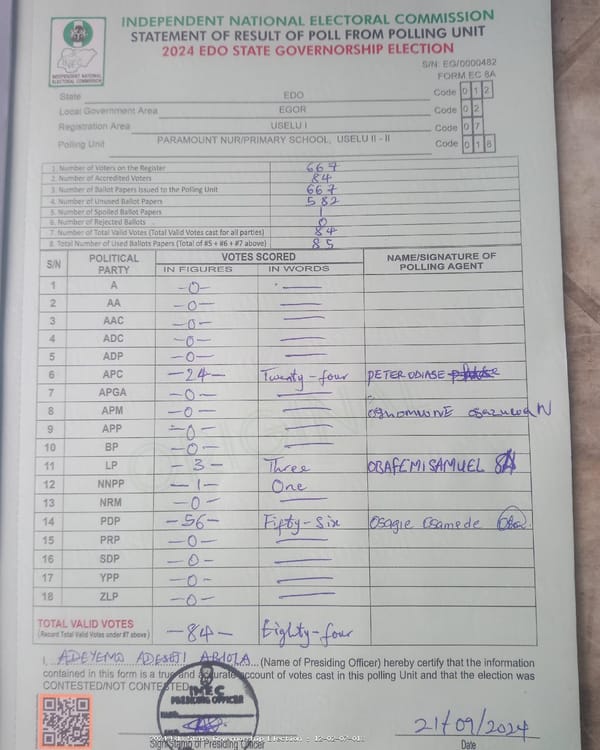 INDEPENDENT NATIONAL ELECTORAL COMMISSION
STATEMENT OF RESULT OF POLL FROM POLLING UNIT
2024 EDO STATE GOVERNORSHIP ELECTION
INEC
INDEPENDENT NATIONAL ELECTORAL COMMISSION
S/N: EG/0000482
FORM EC 8A
State EDO Code 0 1 2
Local Government Area EGOR Code 0 2
Registration Area USELU I Code 0 7
Polling Unit PARAMOUNT NUR/PRIMARY SCHOOL, USELU II - II Code 0 1 8
1. Number of Voters on the Register 667
2. Number of Accredited Voters 84
3. Number of Ballot Papers Issued to the Polling Unit 667
4. Number of Unused Ballot Papers 582
5. Number of Spoiled Ballot Papers 1
6. Number of Rejected Ballots 0
7. Number of Total Valid Votes (Total Valid Votes cast for all parties) 84
8. Total Number of Used Ballots Papers (Total of #5 + #6 + #7 above) 85
S/N POLITICAL PARTY VOTES SCORED NAME/SIGNATURE OF POLLING AGENT
IN FIGURES IN WORDS
1 A -0-
2 AA -0-
3 AAC -0-
4 ADC -0-
5 ADP -0-
6 APC -24- Twenty-four PETER ODIASE
7 APGA -0-
8 APM -0-
9 APP -0-
10 BP -0-
11 LP -3- Three OBAFEMI SAMUEL
12 NNPP -1- One
13 NRM -0-
14 PDP -56- Fifty-Six Osagie Osamede
15 PRP -0-
16 SDP -0-
17 YPP -0-
18 ZLP -0-
TOTAL VALID VOTES -84- Eighty-four
(Record Total Valid Votes under #7 above)
I, ADEYEMO ADESEJI ABIOLA (Name of Presiding Officer) hereby certify that the information
contained in this form is a true and accurate account of votes cast in this polling Unit and that the election was
CONTESTED/NOT CONTESTED
INEC
PRESIDING OFFICER
21/09/2024
Sign/Stamp of Presiding Officer Date